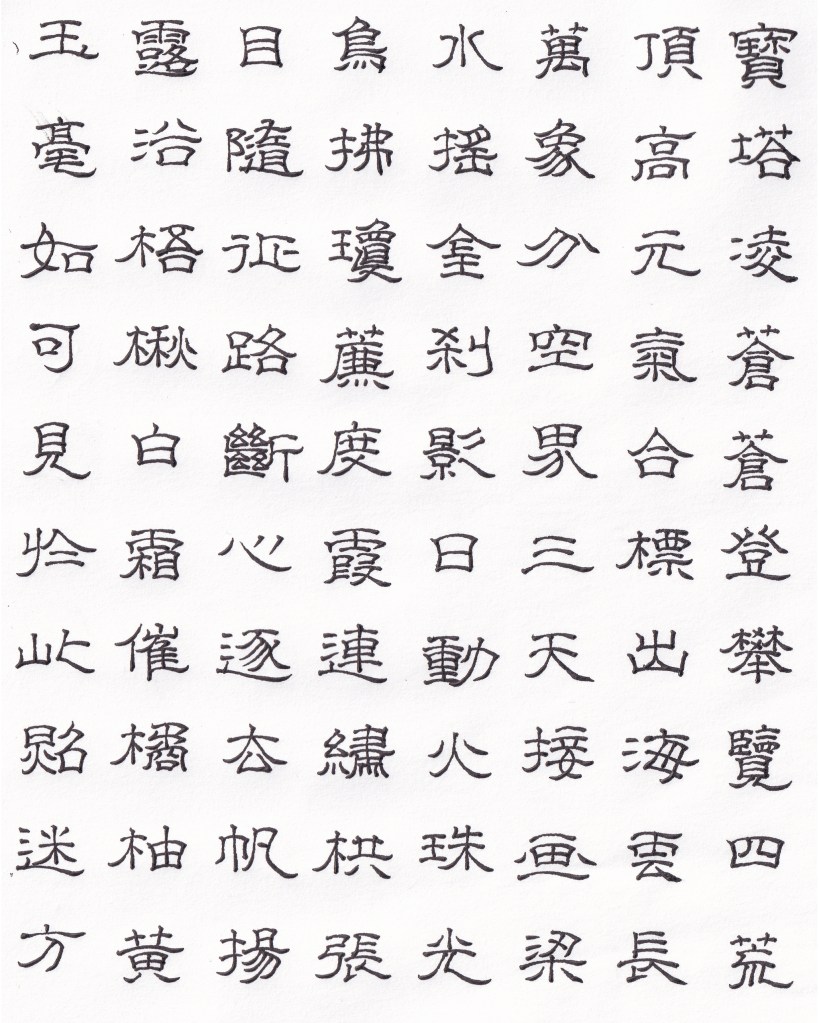 寶塔凌蒼蒼登攀覽四荒
頂高元氣合標出海雲長
萬象分空界三天接画梁
水搖金刹影日動火珠光
鳥拂瓊薕度霞連繡栱張
目隨征路斷心逐去帆揚
露浴梧楸白霜催橘柚黃
玉毫如可見於此照迷方